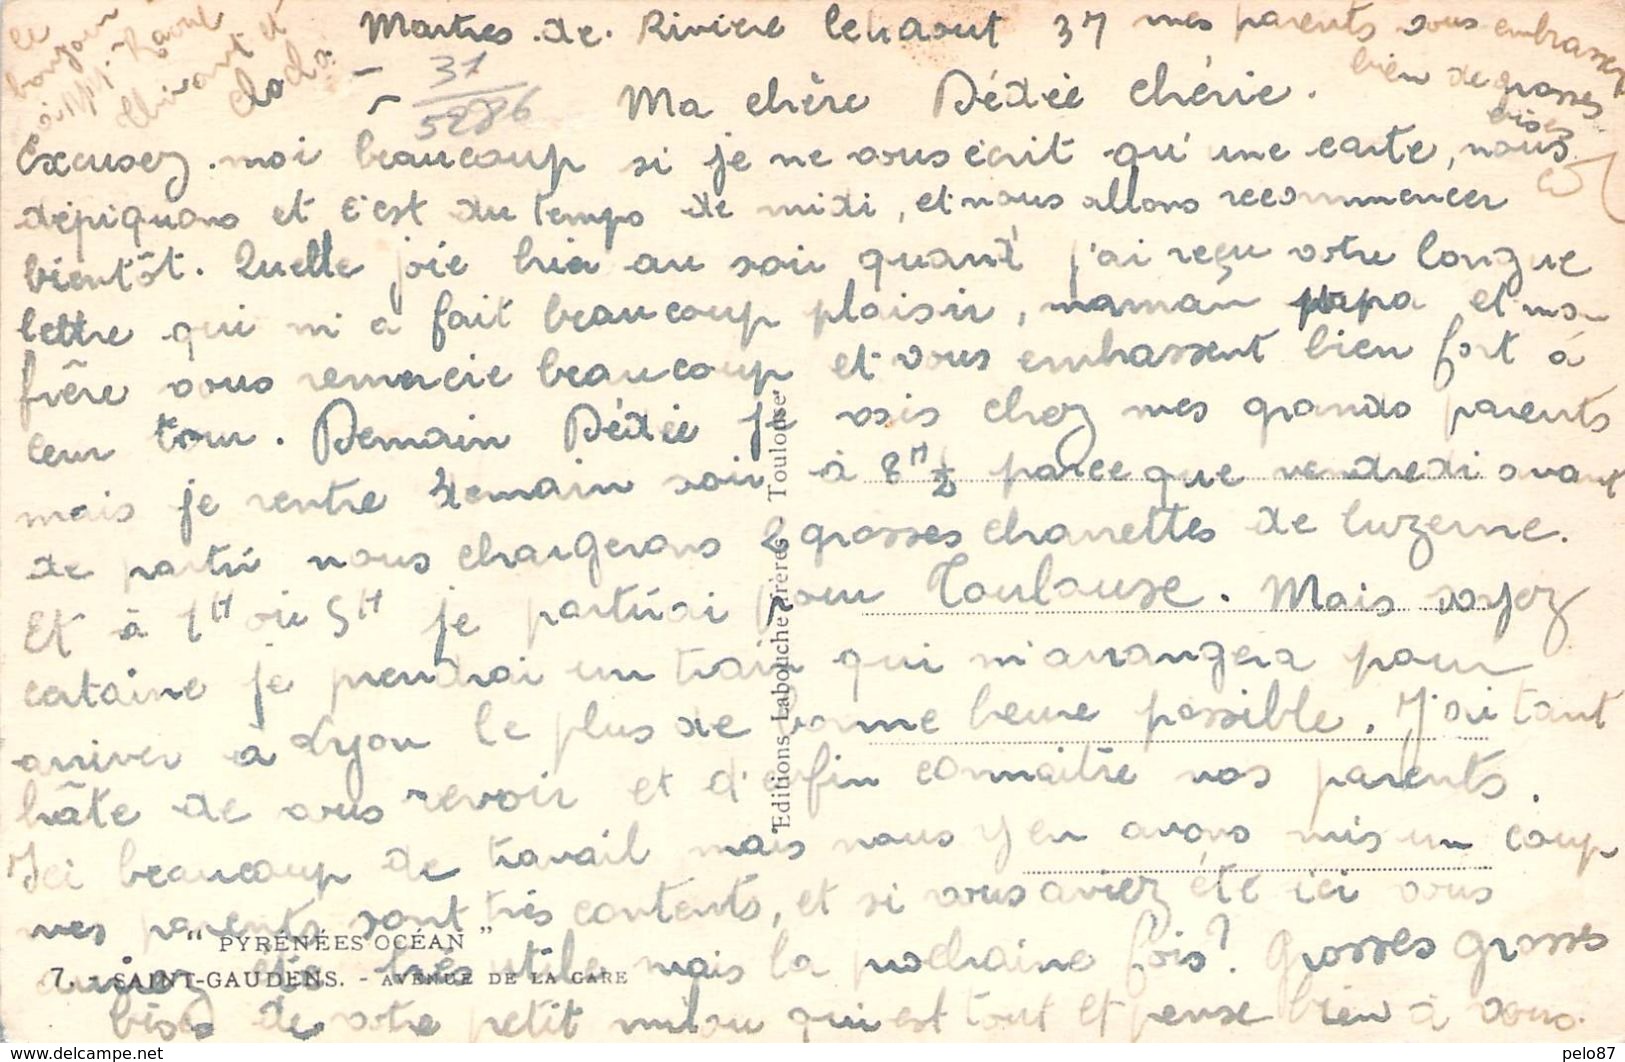 Martres. de. Rivière le 11 aout 37 mes parents vous embrassent
bien de grosses
bises
le
bonjour
Raoul
Clada
31
5286
Ma chère Dédée chérie.
Excusez. moi beaucoup si je ne vous écrit qu'une carte, nous
dépiquons et c'est du temps de midi, et nous allons recommencer
bientôt. Quelle joie hier au soir quand j'ai reçu votre longue
lettre qui m'a fait beaucoup plaisir, maman papa et mon
frère vous remercie beaucoup et vous embrassent bien fort à
leur tour. Demain Dédée je vais chez mes grands parents
mais je rentre demain soir à 8H 1/2 parce que vendredi avant
de partir nous chargerons 2 grosses charrettes de luzerne.
Et à 1H ou 5H je partirai pour Toulouse. Mais soyez
certaine je prendrai un train qui m'arrangera pour
arriver à Lyon le plus de bonne heure possible. J'ai tant
hâte de vous revoir et d'enfin connaitre vos parents.
Ici beaucoup de travail mais nous y en avons mis un coup
mes parents sont très contents, et si vous aviez été ici vous
auriez été très utile mais la prochaine fois? Grosses grosses
bises de votre petit milou qui est tout et pense bien à vous.
Editions Labouche Frères Toulouse
" PYRÉNÉES OCÉAN "
7. - SAINT-GAUDENS. - AVENUE DE LA GARE
www.delcampe.net
pelo87